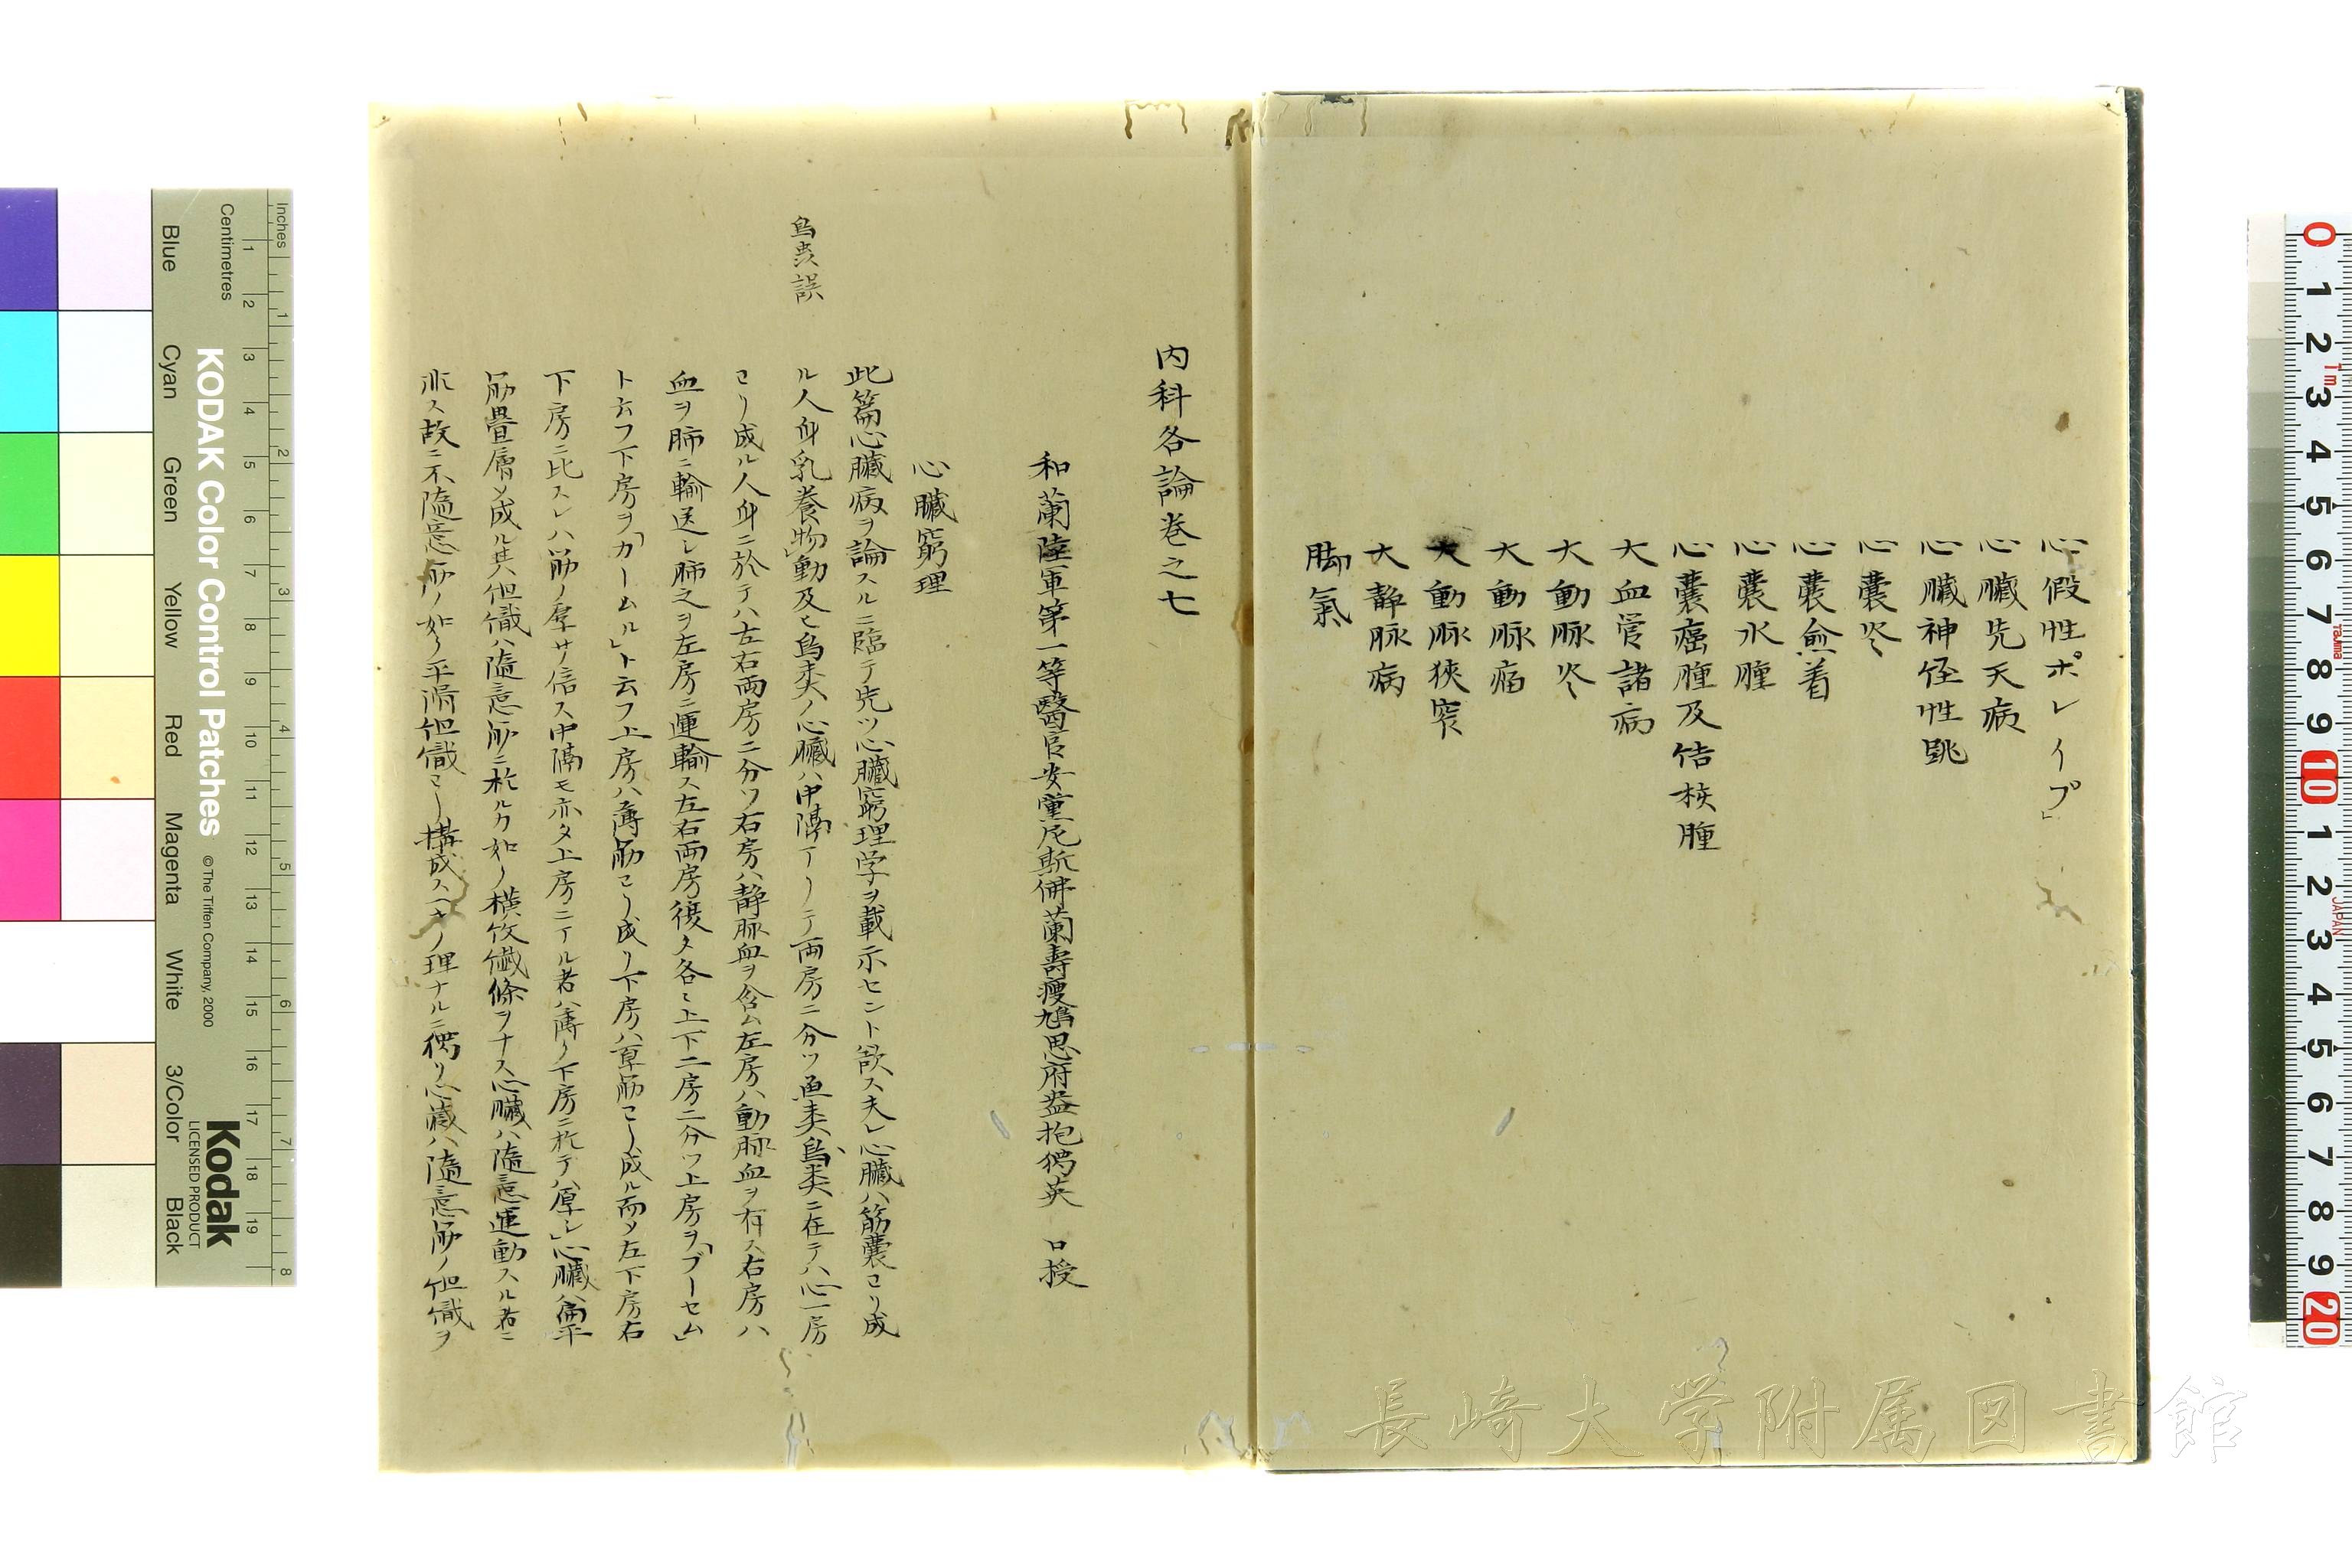 心假性ポレイプ」
心臓先天病
心臓神径性跳
心嚢炎
心嚢愈着
心嚢水腫
心嚢癌腫及佶核腫
大血管諸病
大動脉炎
大動脉瘤
大動脉狹窄
大静脉病
脚氣
内科各論巻之七
和蘭陸軍第一等醫官安童尼斯佛蘭壽瘦鳩思府盎抱獨英 口授
心臓窮理
此篇心臓病ヲ論スルニ臨テ先ツ心臓窮理学ヲ載示セント欲ス夫レ心臓ハ筋嚢ヨリ成
ル人身乳養物動及ヒ鳥类ノ心臓ハ中隔アリテ両房ニ分ツ魚类鳥类ニ在テハ心一房
ヨリ成ル人身ニ於テハ左右両房ニ分ツ右房ハ静脉血ヲ含ム左房ハ動脉血ヲ有ス右房ハ
血ヲ肺ニ輸送シ肺之ヲ左房ニ運輸ス左右両房復タ各々上下二房ニ分ツ上房ヲ「ブーセム」
ト云フ下房ヲ「カームル」ト云フ上房ハ薄筋ヨリ成リ下房ハ厚筋ヨリ成ル而メ左下房右
下房ニ比スレハ筋ノ厚サ倍ス中隔モ亦タ上房ニアル者ハ薄ク下房ニ於テハ厚シ」心臓ハ扁平
筋畳層メ成ル其組織ハ随意筋ニ於ルカ如ク横紋繊條ヲナス心臓ハ随意運動スル者ニ
非ス故ニ不随意筋ノ如ク平滑組織ヨリ構成スヘキノ理ナルニ獨リ心臓ハ随意筋ノ組織ヲ
鳥虫誤
長崎大学附属図書館
KODAK Color Control Patches
© The Tiffen Company, 2000
Kodak
LICENSED PRODUCT
Inches 1 2 3 4 5 6 7 8
Centimetres 1 2 3 4 5 6 7 8 9 10 11 12 13 14 15 16 17 18 19
Blue Cyan Green Yellow Red Magenta White 3/Color Black
0 1 2 3 4 5 6 7 8 9 10 1 2 3 4 5 6 7 8 9 20
1m
Tajima
JAPAN